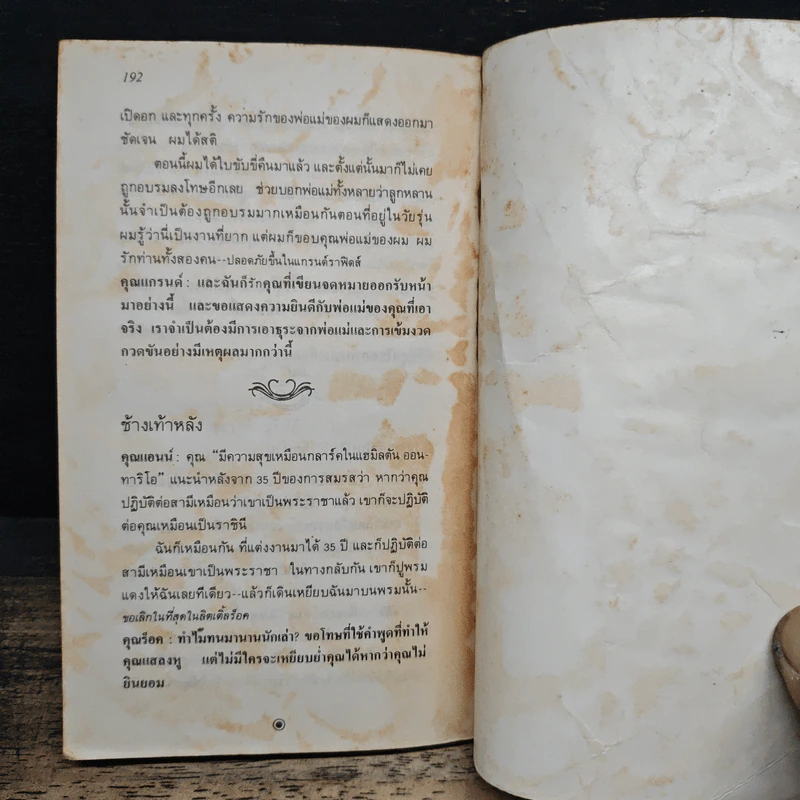 192
เปิดอก และทุกครั้ง ความรักของพ่อแม่ของผมก็แสดงออกมา
ชัดเจน ผมได้สติ
ตอนนี้ผมได้ใบขับขี่คืนมาแล้ว และตั้งแต่นั้นมาก็ไม่เคย
ถูกอบรมลงโทษอีกเลย ช่วยบอกพ่อแม่ทั้งหลายว่าลูกหลาน
นั้นจำเป็นต้องถูกอบรมมากเหมือนกันตอนที่อยู่ในวัยรุ่น
ผมรู้ว่านี่เป็นงานที่ยาก แต่ผมก็ขอบคุณพ่อแม่ของผม ผม
รักท่านทั้งสองคน--ปลอดภัยขึ้นในแกรนด์ราฟิดส์
คุณแกรนด์ : และฉันก็รักคุณที่เขียนจดหมายออกรับหน้า
มาอย่างนี้ และขอแสดงความยินดีกับพ่อแม่ของคุณที่เอา
จริง เราจำเป็นต้องมีการเอาธุระจากพ่อแม่และการเข้มงวด
กวดขันอย่างมีเหตุผลมากกว่านี้
ช้างเท้าหลัง
คุณแอนน์ : คุณ “มีความสุขเหมือนกลาร์คในแฮมิลตัน ออน-
ทาริโอ” แนะนำหลังจาก 35 ปีของการสมรสว่า หากว่าคุณ
ปฏิบัติต่อสามีเหมือนว่าเขาเป็นพระราชาแล้ว เขาก็จะปฏิบัติ
ต่อคุณเหมือนเป็นราชินี
ฉันก็เหมือนกัน ที่แต่งงานมาได้ 35 ปี และก็ปฏิบัติต่อ
สามีเหมือนเขาเป็นพระราชา ในทางกลับกัน เขาก็ปูพรม
แดงให้ฉันเลยทีเดียว--แล้วก็เดินเหยียบฉันมาบนพรมนั้น--
ขอเลิกในที่สุดในลิตเติ้ลร็อค
คุณร็อค : ทำไมทนมานานนักเล่า? ขอโทษที่ใช้คำพูดที่ทำให้
คุณแสลงหู แต่ไม่มีใครจะเหยียบย่ำคุณได้หากว่าคุณไม่
ยินยอม